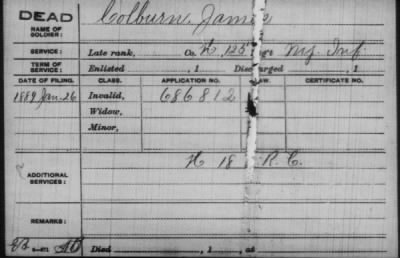 DEAD Colburn, James
NAME OF SOLDIER:
SERVICE: Late rank, Co. H, 125 Reg't Ny. Inf.
TERM OF SERVICE: Enlisted , 1 Discharged , 1
DATE OF FILING. CLASS. APPLICATION NO. LAW. CERTIFICATE NO.
1889 Jan. 26 Invalid, 686812
Widow,
Minor,
ADDITIONAL SERVICES: H 18 R. C.
REMARKS:
Died , 1 , at